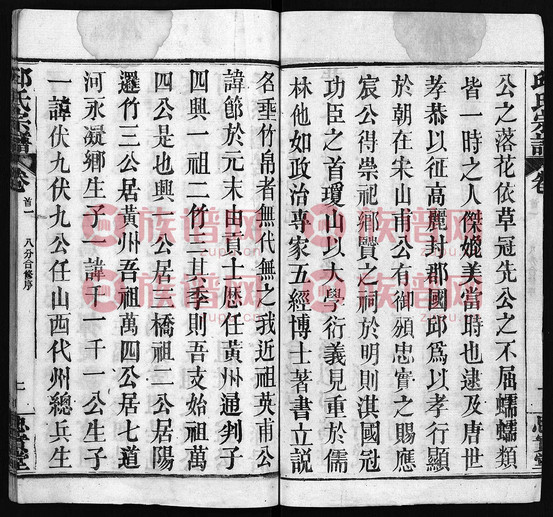 公之落花依草冠先公之不屈蠕蠕類
皆一時之人傑媲美當時也逮及唐世
孝恭以征高麗封郡國邱爲以孝行顯
於朝在宋山甫公有御頒忠實之賜應
宸公得崇祀鄉賢之祠於明則淇國冠
功臣之首瓊山以大學衍義見重於儒
林他如政治專家五經博士著書立說
名垂竹帛者無代無之我近祖英甫公
諱節於元末由貢士歷任黃州通判子
四興一祖二仁三其季則吾支始祖萬
四公是也興一公居 橋祖二公居陽
邏竹三公居黃州吾祖萬四公居七道
河永凝鄉生子二諱千一千一公生子
一諱伏九伏九公任山西代州總兵生
邱氏宗譜 卷首一 八分合修序
邱氏宗譜 卷
族谱网
zupu.cn
族谱网
zupu.cn
族谱网
zupu.cn
族谱网
zupu.cn